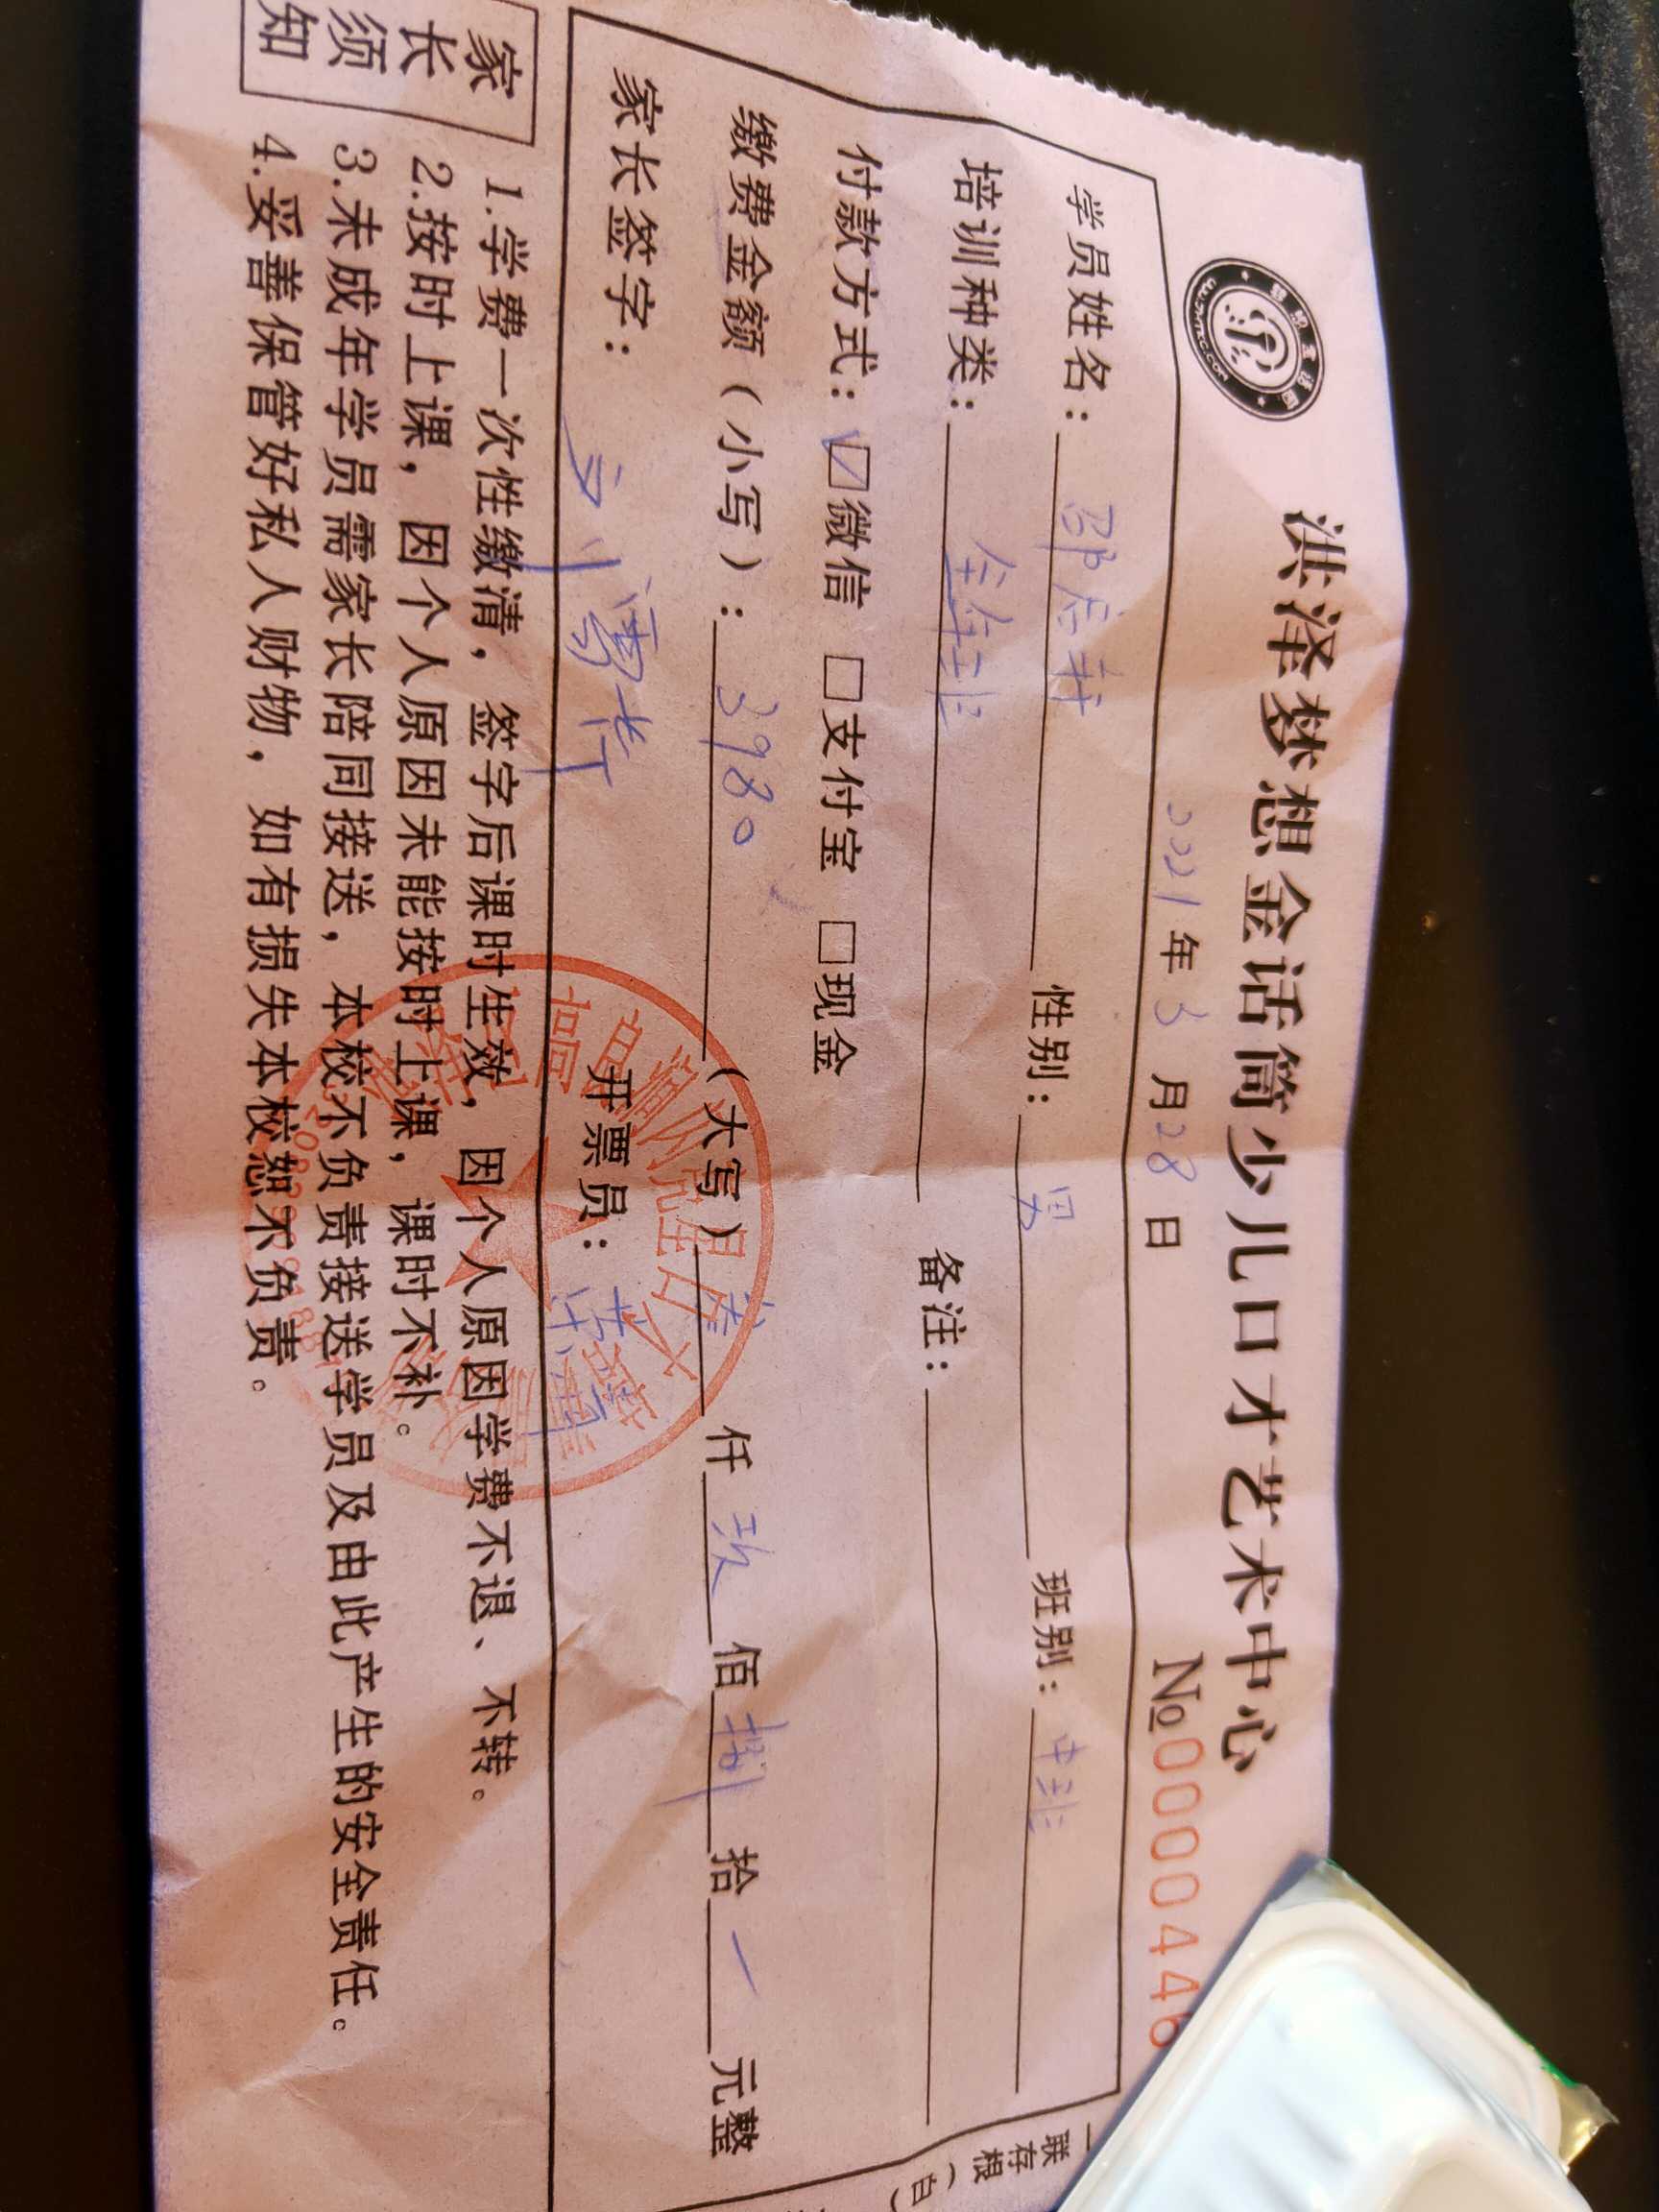 洪泽梦想金话筒少儿口才艺术中心
2021年3月28日 №0000446
学员姓名： 性别：男 班别：中班
培训种类：全年班 备注：
付款方式：☑微信 □支付宝 □现金
缴费金额（小写）：3980 （大写）叁仟玖佰捌拾 元整
家长签字： 开票员：
家长须知
1.学费一次性缴清，签字后课时生效，因个人原因学费不退、不转。
2.按时上课，因个人原因未能按时上课，课时不补。
3.未成年学员需家长陪同接送，本校不负责接送学员及由此产生的安全责任。
4.妥善保管好私人财物，如有损失本校恕不负责。
一联存根（白）